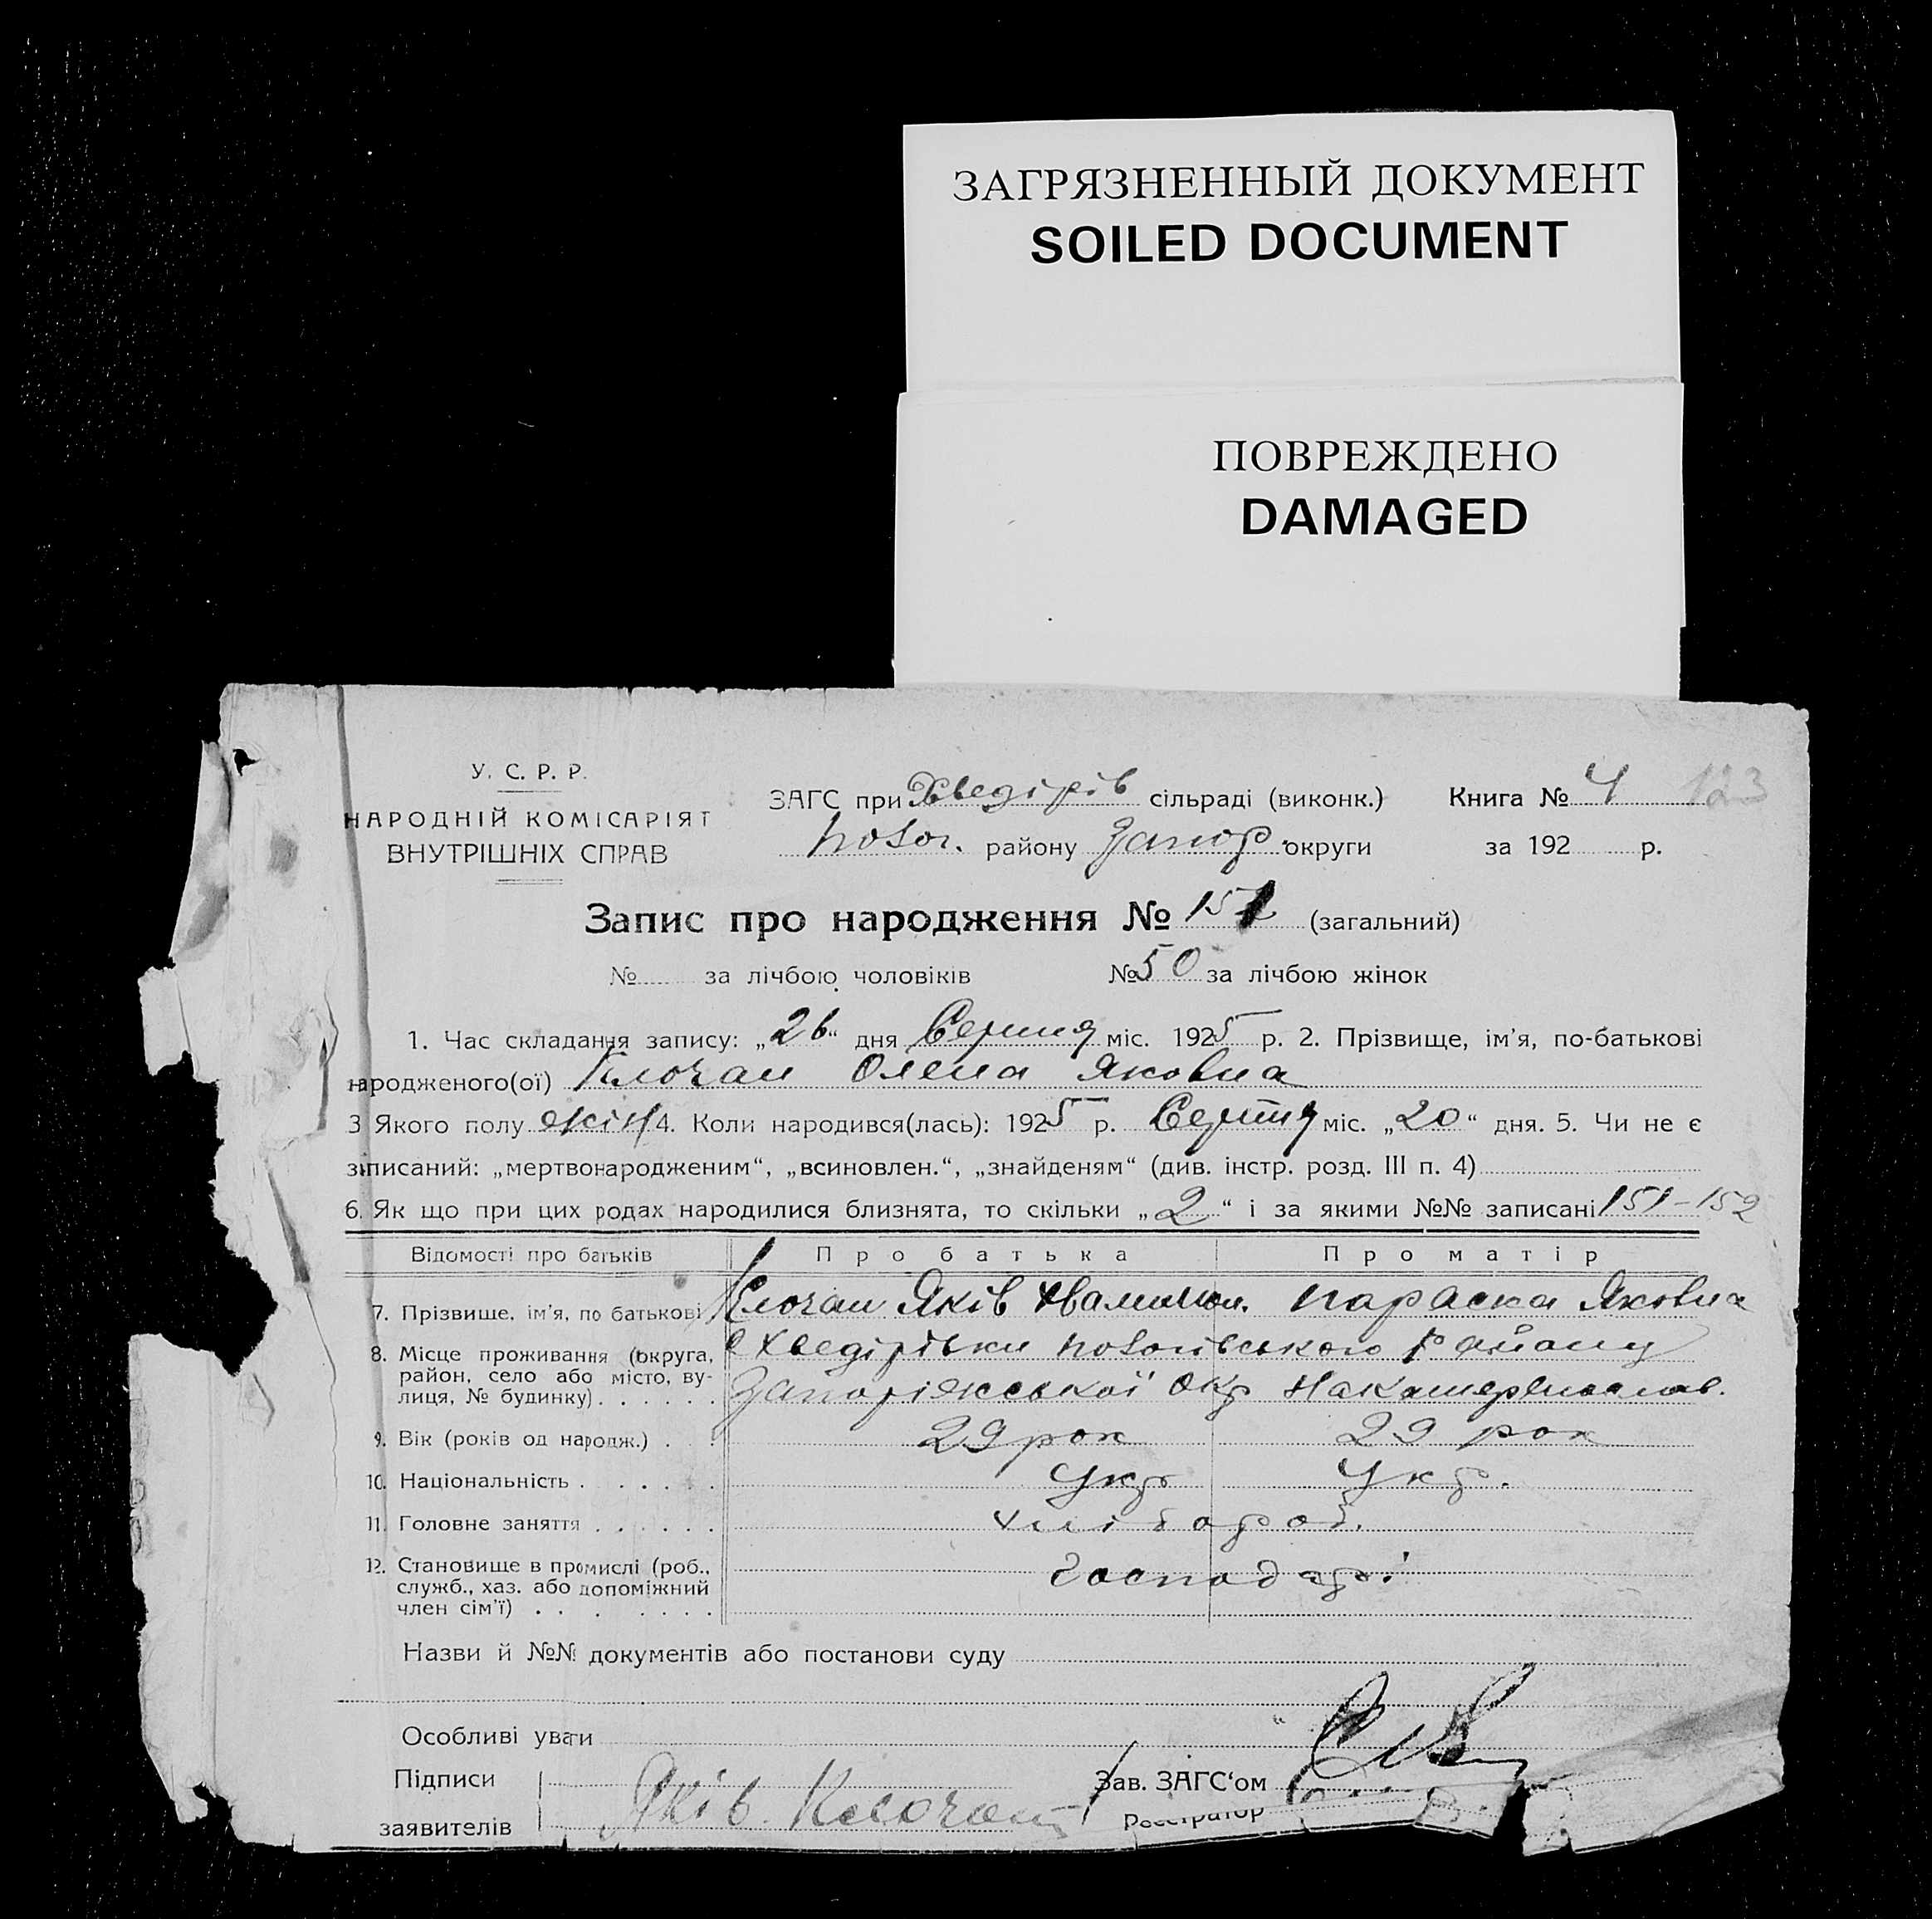 ЗАГРЯЗНЕННЫЙ ДОКУМЕНТ
SOILED DOCUMENT
ПОВРЕЖДЕНО
DAMAGED
У. С. Р. Р.
НАРОДНІЙ КОМІСАРІЯТ
ВНУТРІШНІХ СПРАВ
ЗАГС при Хведірів сільраді (виконк.)
район Запор. округи
Книга № 4 123
за 192 р.
Запис про народження № 151 (загальний)
№ за лічбою чоловіків № 50 за лічбою жінок
1. Час складання запису: „26“ дня Серпня міс. 1925 р. 2. Прізвище, ім'я, по-батькові
народженого(ої) Клочан Олена Яковна
3 Якого полу жін 4. Коли народився(лась): 1925 р. Серпня міс. „20“ дня. 5. Чи не є
записаний: „мертвонародженим“, „всиновлен.“, „знайденям“ (див. інстр. розд. III п. 4)
6. Як що при цих родах народилися близнята, то скільки „2“ і за якими №№ записані 151-152
Відомості про батьків Про батька Про матір
7. Прізвище, ім'я, по батькові Клочан Яків Параска Яковна
8. Місце проживання (округа, район, село або місто, вулиця, № будинку) Хведірівки району
Запоріжської Окр
9. Вік (років од народж.) 29 рок 29 рок
10. Національність Укр Укр.
11. Головне заняття хлібороб.
12. Становище в промислі (роб., служб., хаз. або допоміжний член сім'ї) господарі
Назви й №№ документів або постанови суду
Особливі уваги
Підписи
заявителів Яків Клочан
Зав. ЗАГС'ом
Реєстратор